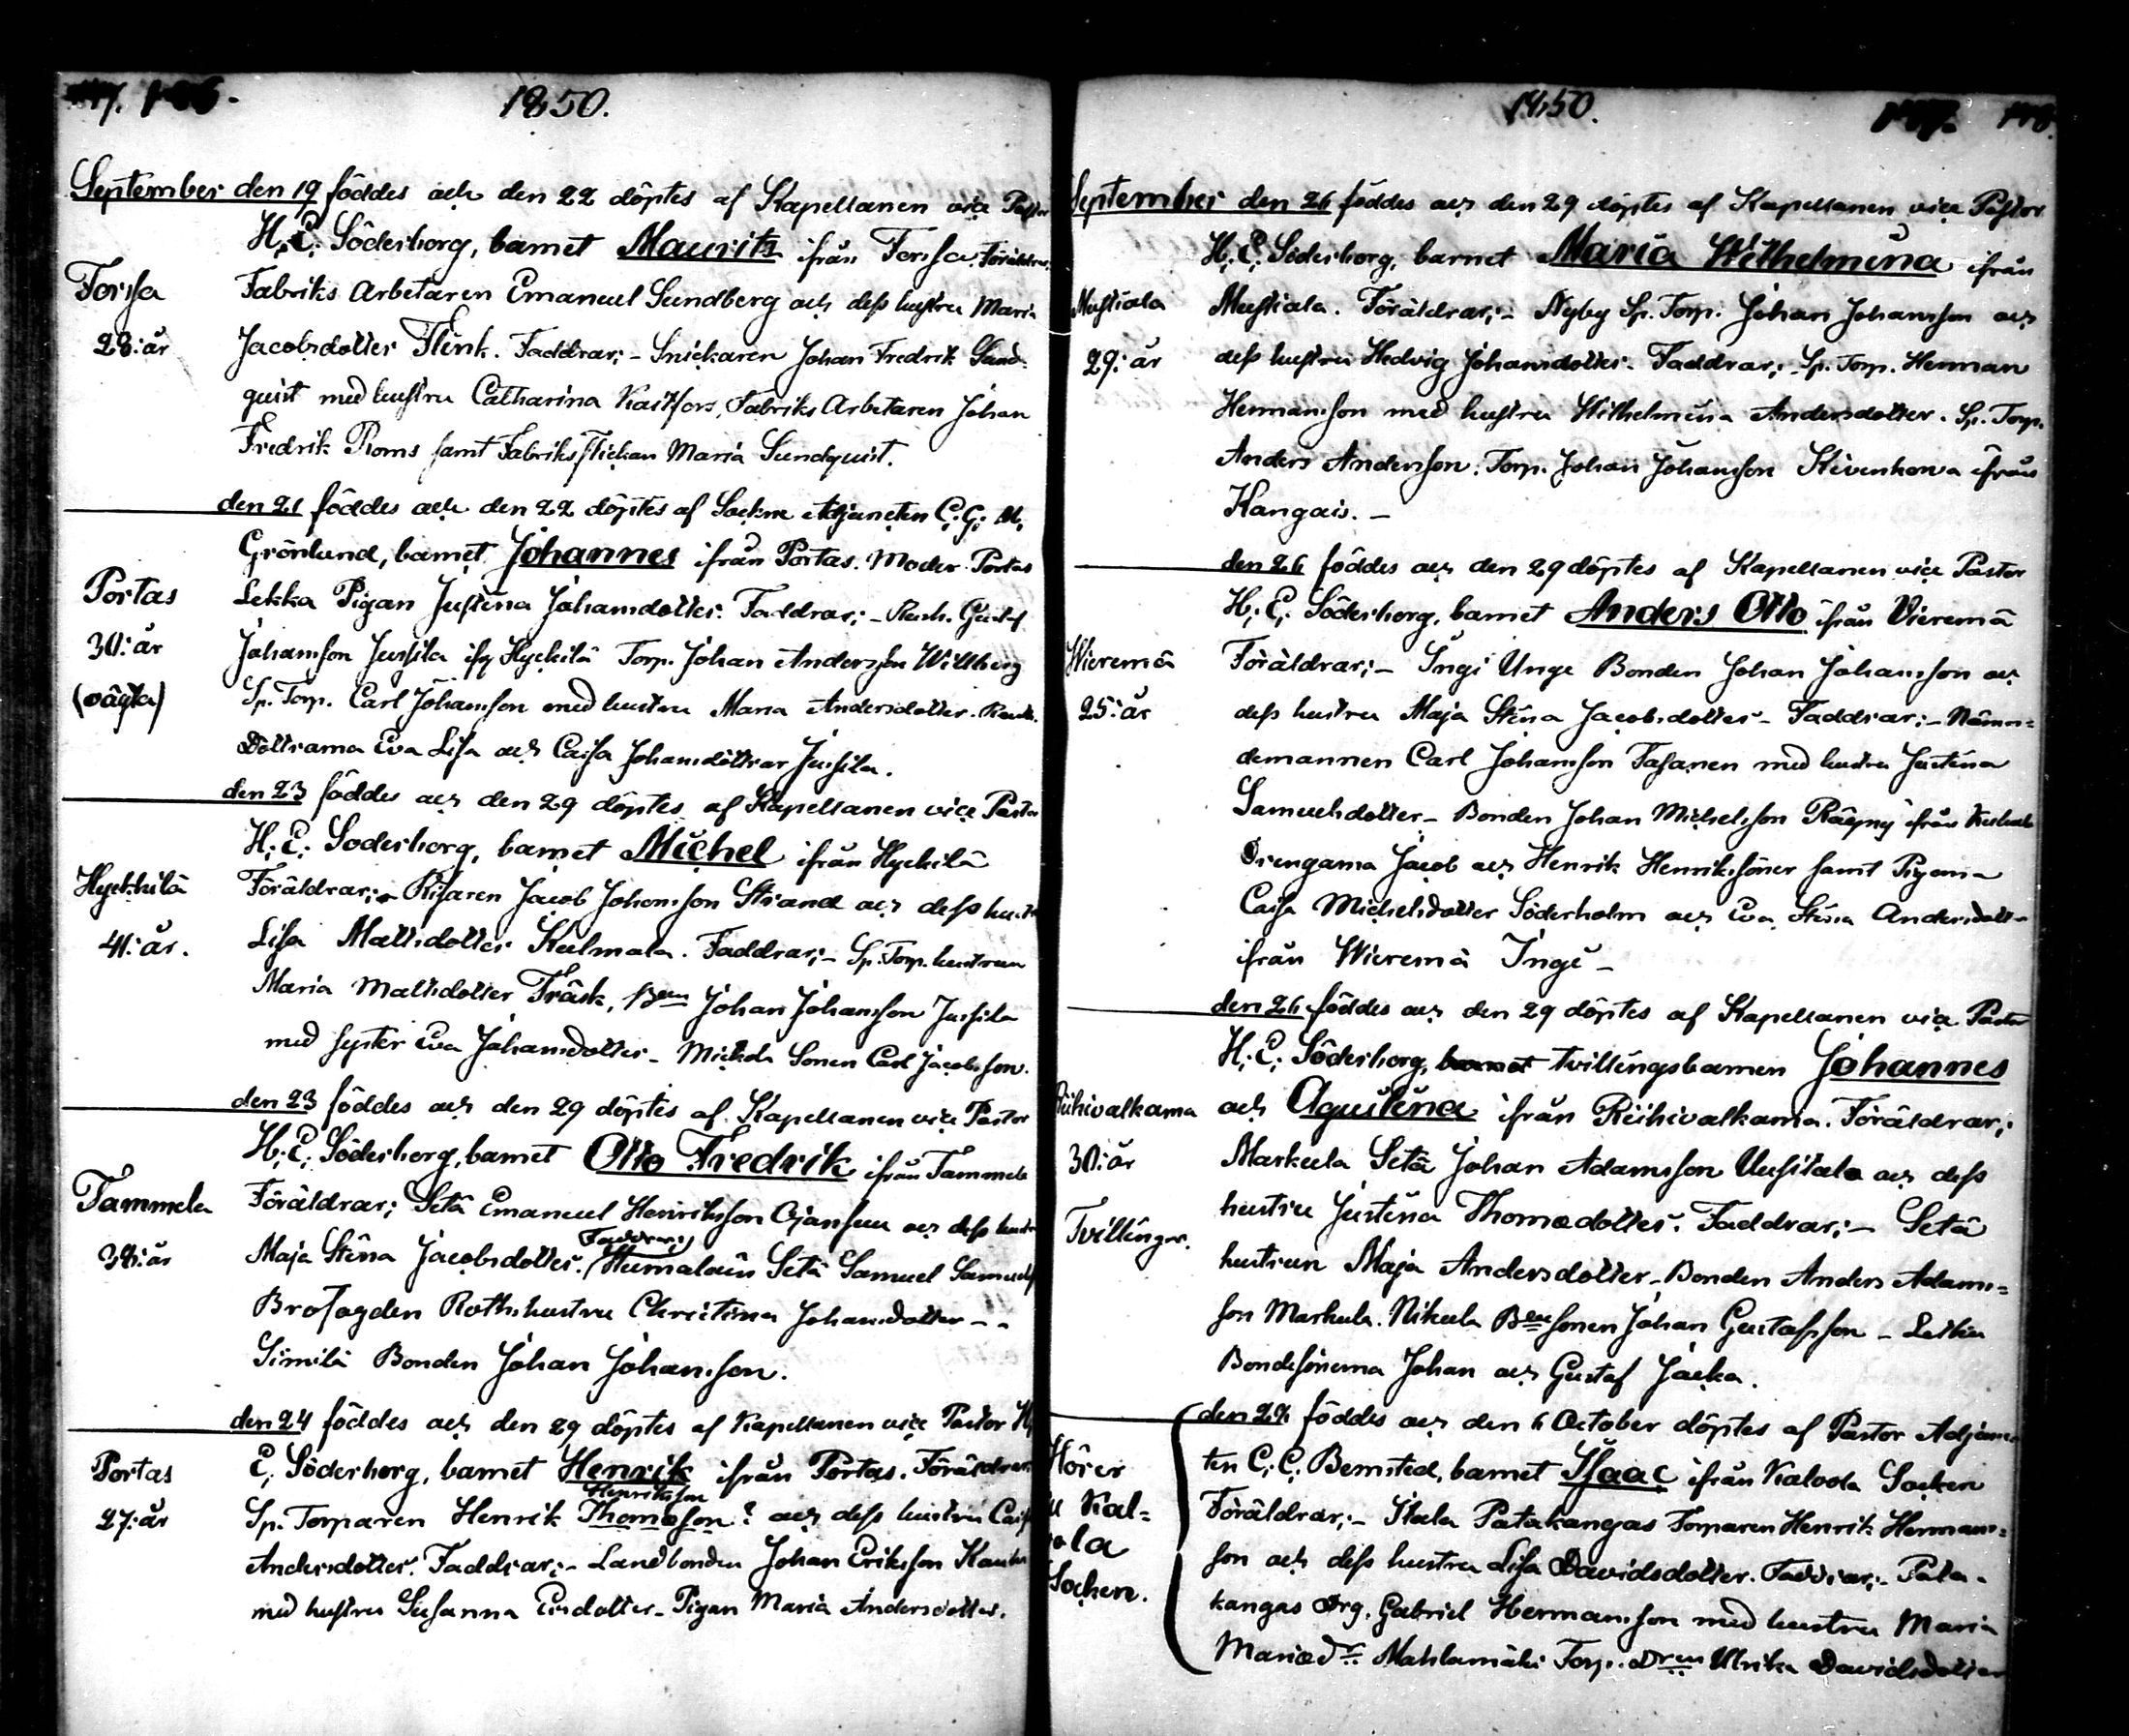 1850.
September den 19 föddes och den 22 döptes af Kapellanen vice Pastor
H. E. Söderborg, barnet Mauritz ifrån Forssa. Föräldrar:
Forssa
Fabriks Arbetaren Emanuel Sundberg och dess hustru Maria
28: år
Jacobsdotter Flink. Faddrar; - Snickaren Johan Fredrik Sund-
quist med hustru Catharina Kaitfors, Fabriks Arbetaren Johan
Fredrik Roms samt Fabriksflickan Maria Sundquist.
den 21 föddes och den 22 döptes af Sockne Adjuncten C. G. M.
Grönlund, barnet Johannes ifrån Portas. Moder Portas
Portas
Lekka Pigan Justina Johansdotter. Faddrar; - Rusth. Gustaf
30: år
Johansson Jussila ifr Hyckilä Torp. Johan Andersson Willberg
(oägta)
Sp. Torp. Carl Johansson med hustru Maria Andersdotter. Rusth.
Döttrarna Eva Lisa och Caisa Johansdöttrar Jussila.
den 23 föddes och den 29 döptes af Kapellanen vice Pastor
H. E. Söderborg, barnet Michel ifrån Hyckilä
Hyckkilä
Föräldrar; - Jacob Johansson Strand och dess hustru
41: år.
Lisa Mattsdotter Kulmala. Faddrar; - Sp. Torp. hustrun
Maria Mattsdotter Träsk, Bden Johan Johansson Jussila
med syster Eva Johansdotter - Michola Sonen Carl Jacobsson.
den 23 föddes och den 29 döptes af Kapellanen vice Pastor
H. E. Söderborg, barnet Otto Fredrik ifrån Tammela
Tammela
Föräldrar; Setä Emanuel Henriksson Ojansuu och dess hustru
38: år
Maja Stina Jacobsdotter. Faddrar; Humalain Setä Samuel Samuels
Brofogden Roths hustru Christina Johansdotter - -
Simiilä Bonden Johan Johansson.
den 24 föddes och den 29 döptes af Kapellanen vice Pastor H.
Portas
E. Söderborg, barnet Henrik ifrån Portas. Föräldrar
27: år
Sp. Torparen Henrik Henriksson Thomasson? och dess hustru Caisa
Andersdotter. Faddrar; - Landbonden Johan Eriksson
med hustru Susanna Ersdotter - Pigan Maria Andersdotter.
1850.
September den 26 föddes och den 29 döptes af Kapellanen vice Pastor
H. E. Söderborg, barnet Maria Wilhelmina ifrån
Mustiala
Mustiala. Föräldrar; - Nyby Sp. Torp. Johan Johansson och
29: år
dess hustru Hedvig Johansdotter. Faddrar; - Sp. Torp. Herman
Hermansson med hustru Wilhelmina Andersdotter. Sp. Torp.
Anders Andersson. Torp. Johan Johansson Kivenhova ifrån
Kangais. -
den 26 föddes och den 29 döptes af Kapellanen vice Pastor
H. E. Söderborg, barnet Anders Otto ifrån Vieremä
Wieremä
Föräldrar; - Ingi Unge Bonden Johan Johansson och
25: år
dess hustru Maja Stina Jacobsdotter - Faddrar; - Nämn=
demannen Carl Johansson Tasanen med hustru Justina
Samuelsdotter - Bonden Johan Michelsson Räyny ifrån
Drengarna Jacob och Henrik Henrikssöner samt Pigorna
Caisa Michelsdotter Söderholm och Eva Stina Andersdotter
ifrån Wieremä Inge -
den 26 föddes och den 29 döptes af Kapellanen vice Pastor
H. E. Söderborg, barnet tvillingsbarnen Johannes
Riihivalkama
och Agustina ifrån Riihivalkama. Föräldrar;
30: år
Markula Setä Johan Adamsson Uusitalo och dess
Tvillingar.
hustru Justina Thomædotter. Faddrar; - Setä
hustrun Maja Andersdotter - Bonden Anders Adams=
son Markula. Nikula Bdesonen Johan Gustafsson - Leikka
Bondesönerna Johan och Gustaf Jacka.
den 28 föddes och den 6 October döptes af Pastor Adjunc
Hörer
ten C. C. Bernsted, barnet Isaac ifrån Kalvola Socken
Kal=
Föräldrar; - Itala Patakangas Torparen Henrik Hermans=
ola
son och dess hustru Lisa Davidsdotter. Faddrar; - Pata-
Socken.
kangas Drg. Gabriel Hermansson med hustru Maria
Mariædr Mahlamäki Torp. Dren Ulrika Davidsdotter